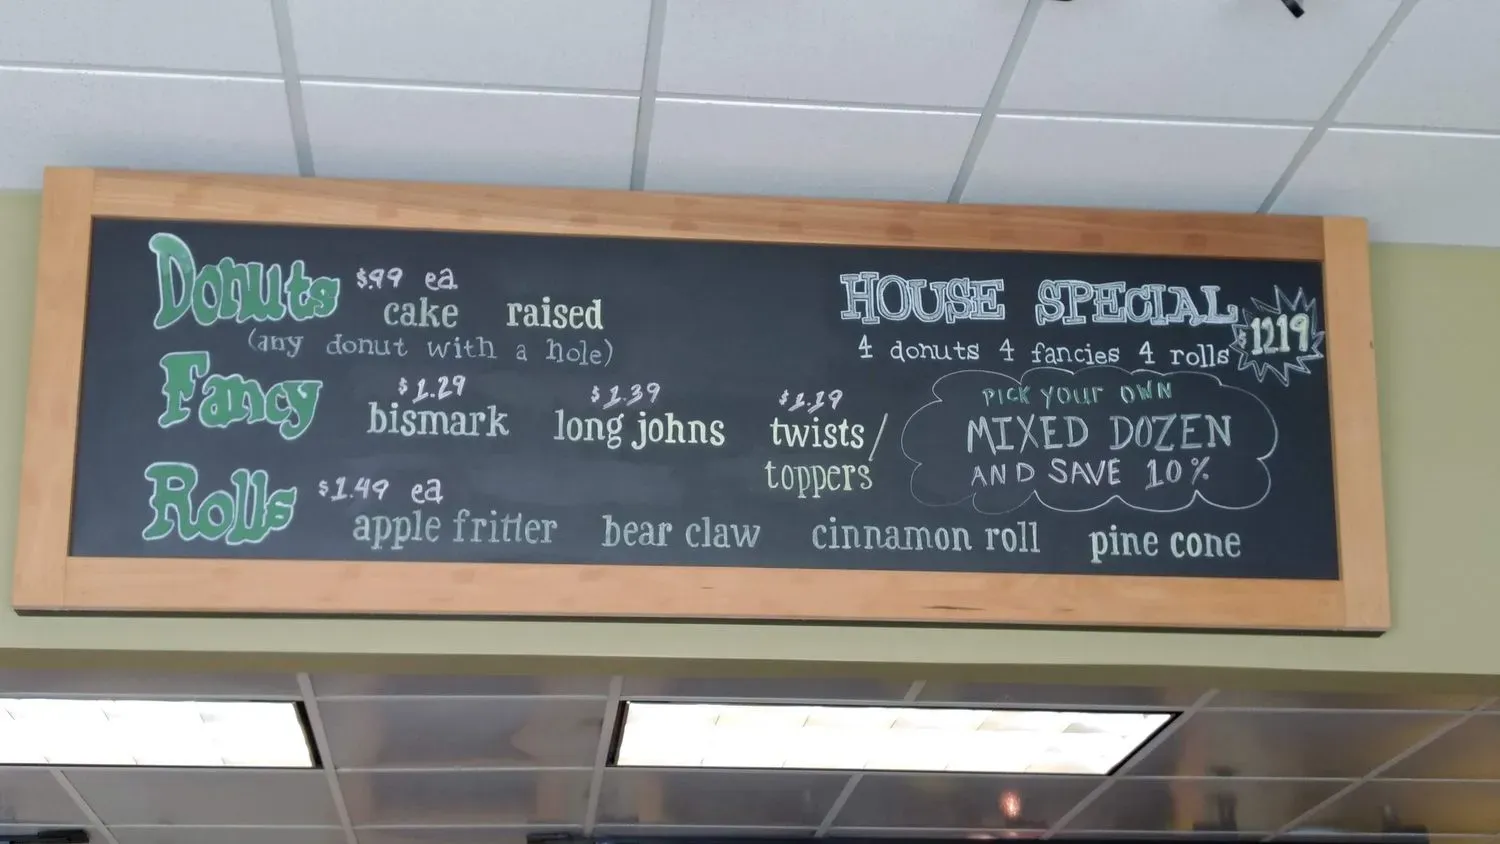 Donuts $.99 ea.
cake raised
(any donut with a hole)
Fancy
$1.29 $1.39 $1.19
bismark long johns twists/
toppers
Rolls $1.49 ea
apple fritter bear claw cinnamon roll pine cone
HOUSE SPECIAL
4 donuts 4 fancies 4 rolls
$1219
PICK YOUR OWN
MIXED DOZEN
AND SAVE 10%